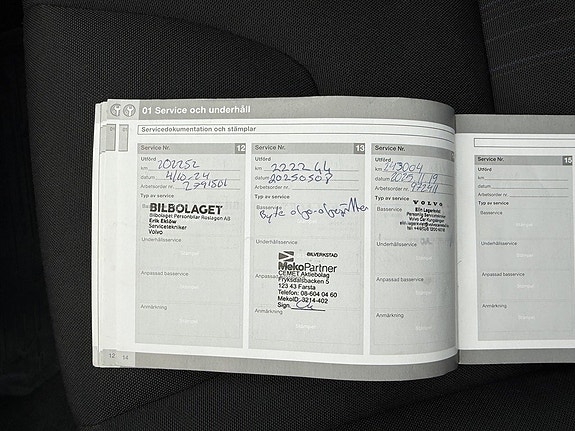 01 Service och underhåll
Servicedokumentation och stämplar
Service Nr. 12
Utförd
km 202252
datum 4/10-24
Arbetsorder nr.
Typ av service
BILBOLAGET
Bilbolaget Personbilar Roslagen AB
Erik Eklöw
Servicetekniker
Volvo
Underhållsservice
Stämpel
Anpassad basservice
Stämpel
Anmärkning
Stämpel
Service Nr. 13
Utförd
km 222244
datum 20250508
Arbetsorder nr.
Typ av service
Basservice
Byte olja-oljefilter
Underhållsservice
BILVERKSTAD
MekoPartner
CEMET Aktiebolag
Fryksdalsbacken 5
123 43 Farsta
Telefon: 08-604 04 60
MekoID: 3214-402
Sign.
Anpassad
Anmärkning
Stämpel
Service Nr.
Utförd
km 243004
datum 2025-11-19
Arbetsorder nr.
Typ av service
Basservice
VOLVO
Elin Lagerkvist
Personlig Servicetekniker
Volvo Car
Underhållsservice
Stämpel
Anpassad basservice
Stämpel
Anmärkning
Stämpel
Service Nr. 15
Utförd
km
datum
Arbetsorder nr.
Typ av service
Basservice
Underhållsservice
Anpassad basservice
Anmärkning
12 14